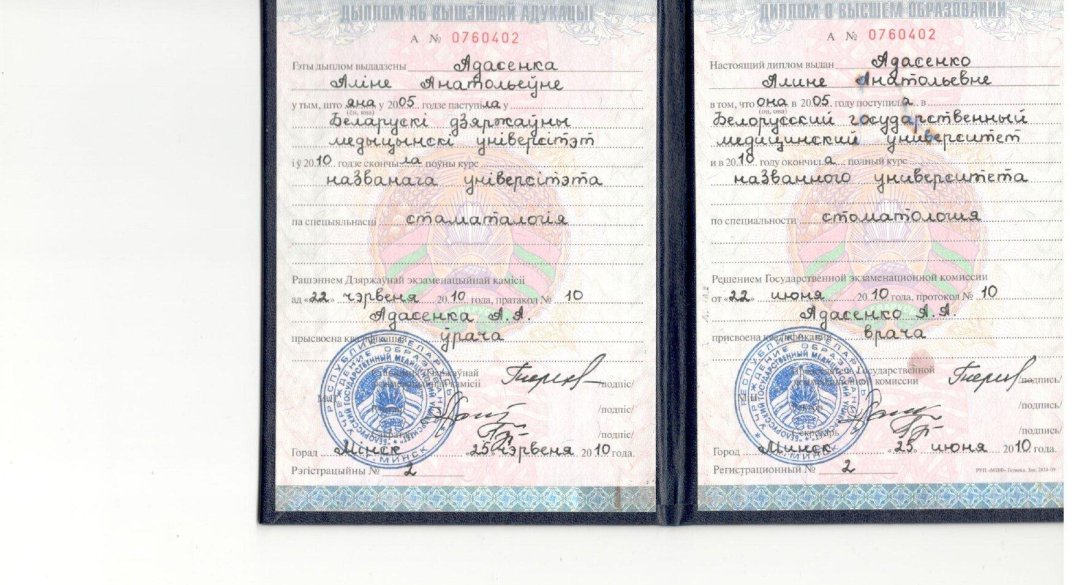 ДЫПЛОМ АБ ВЫШЭЙШАЙ АДУКАЦЫІ
А № 0760402
Гэты дыплом выдадзены Адасенка
Аліне Анатольеўне
у тым, што яна у 2005 годзе паступіла у
(ён, яна)
Беларускі дзяржаўны
медыцынскі універсітэт
і ў 2010 годзе скончыла поўны курс
названага універсітэта
па спецыяльнасці стаматалогія
Рашэннем Дзяржаўнай экзаменацыйнай камісіі
ад «22» чэрвеня 2010 года, пратакол № 10
Адасенка А.А.
прысвоена кваліфікацыя ўрача
/подпіс/
/подпіс/
/подпіс/
Горад Мінск «25» чэрвеня 2010 года.
Рэгістрацыйны № 2
ДИПЛОМ О ВЫСШЕМ ОБРАЗОВАНИИ
А № 0760402
Настоящий диплом выдан Адасенко
Алине Анатольевне
в том, что она в 2005 году поступила в
(он, она)
Белорусский государственный
медицинский университет
и в 2010 году окончила полный курс
названного университета
по специальности стоматология
Решением Государственной экзаменационной комиссии
от «22» июня 2010 года, протокол № 10
Адасенко А.А.
присвоена квалификация врача
Председатель Государственной
экзаменационной комиссии
/подпись/
/подпись/
/подпись/
Город Минск «25» июня 2010 года.
Регистрационный № 2